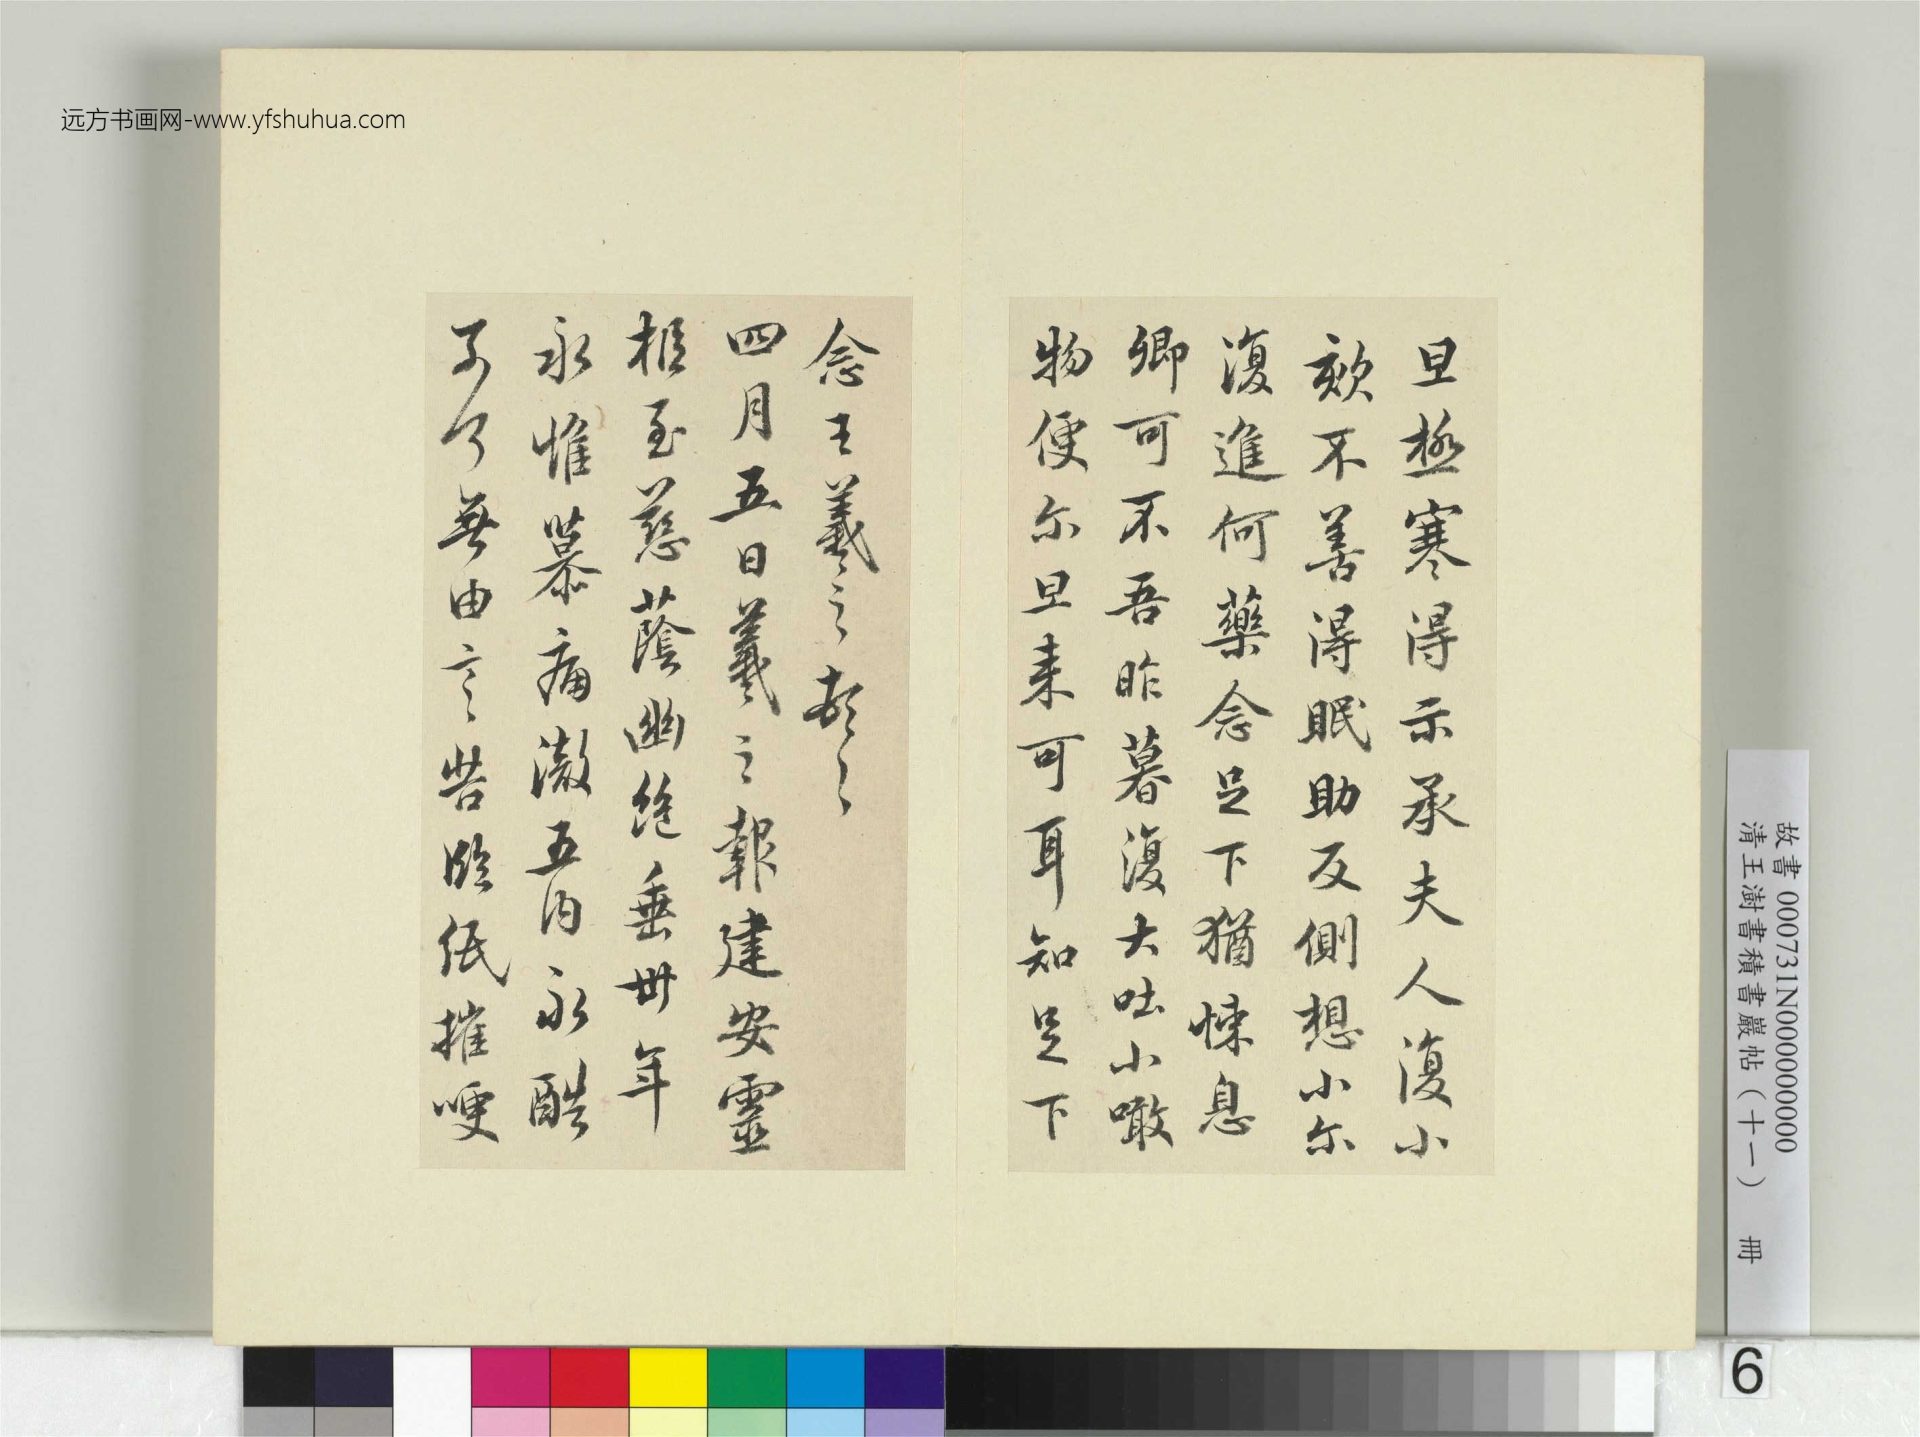 远方书画网-www.yfshuhua.com
旦極寒得示承夫人復小
欬不善得眠助反側想小尔
復進何藥念足下猶悚息
卿可不吾昨暮復大吐小噉
物便尔旦来可耳知足下
念王羲之頓〻
四月五日羲之報建安靈
柩至慈蔭幽絕垂卅年
永惟崩慕痛徹五內永酷
奈何無由言告臨紙摧哽
故書 000731N000000000
清王澍書積書巖帖（十一） 冊
6